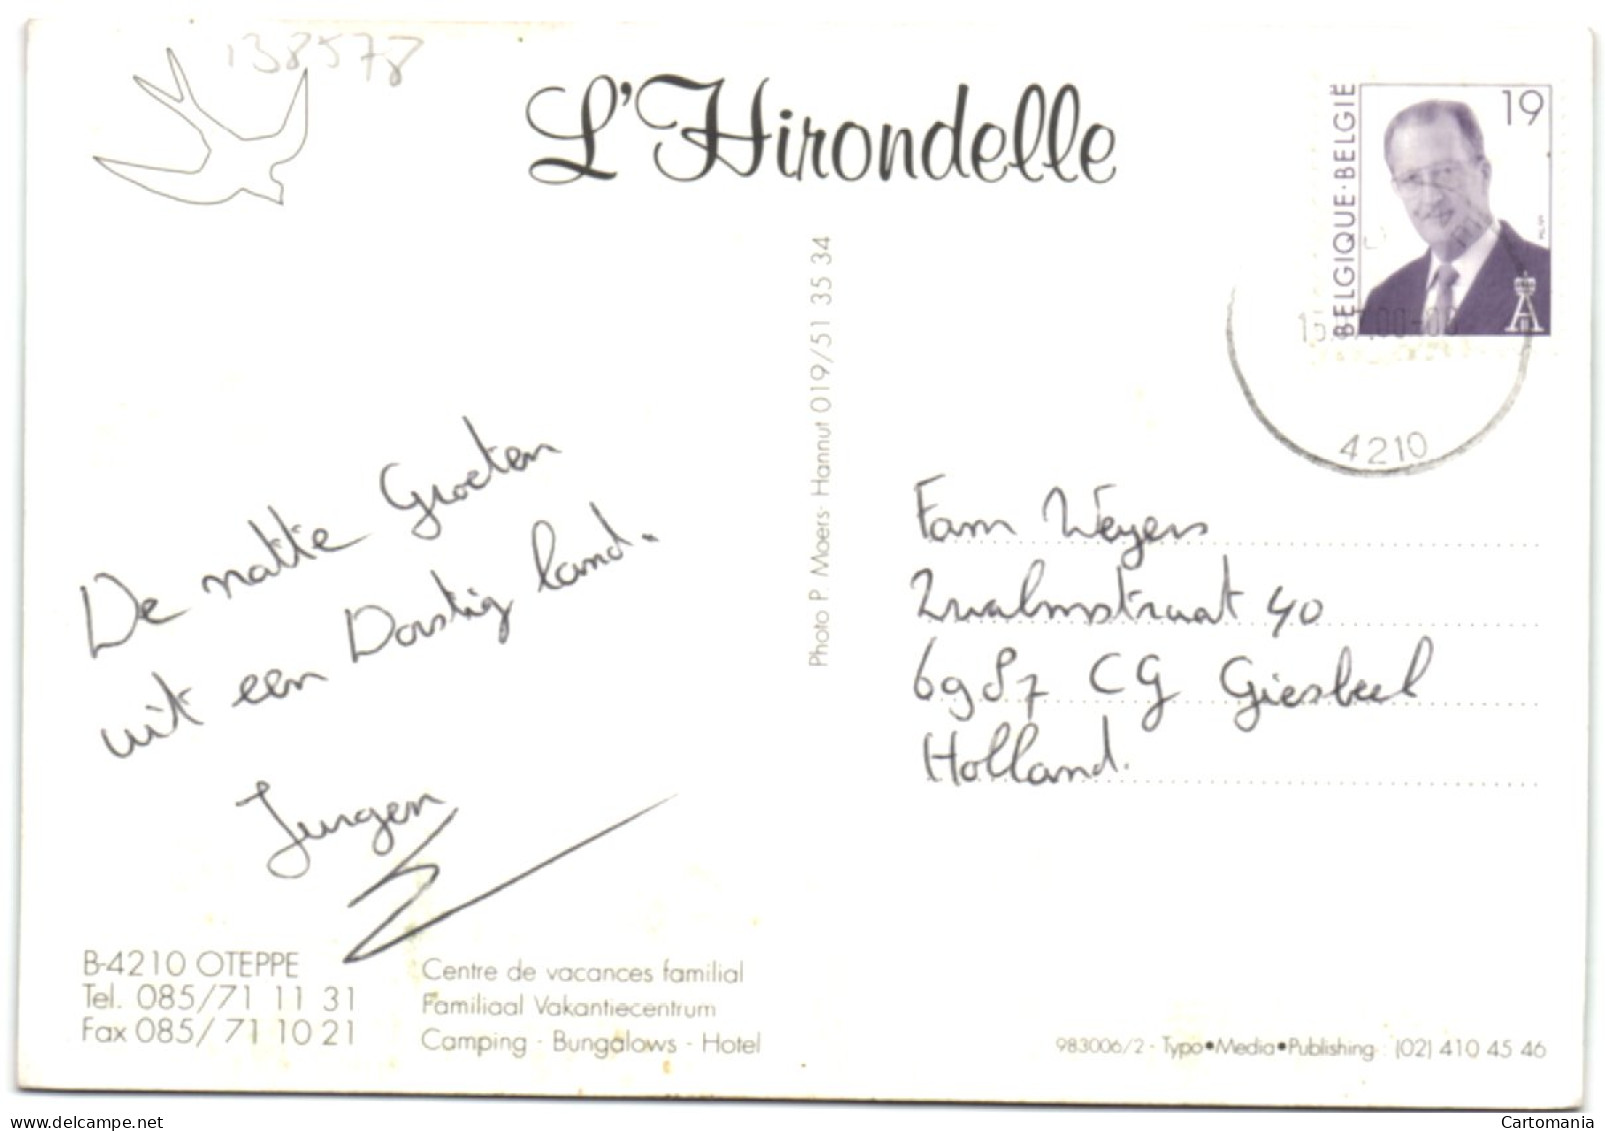 138578
L'Hirondelle
19
BELGIQUE·BELGIË
4210
De natte Groeten
uit een Dorstig land.
Jurgen
Photo P. Maers- Hannut 019/51 35 34
Fam Weyers
Zwalmstraat 40
6987 CG Giesbeek
Holland.
B-4210 OTEPPE
Tel. 085/71 11 31
Fax 085/71 10 21
Centre de vacances familial
Familiaal Vakantiecentrum
Camping - Bungalows - Hotel
983006/2 - Typo•Media•Publishing : (02) 410 45 46
Cartomania